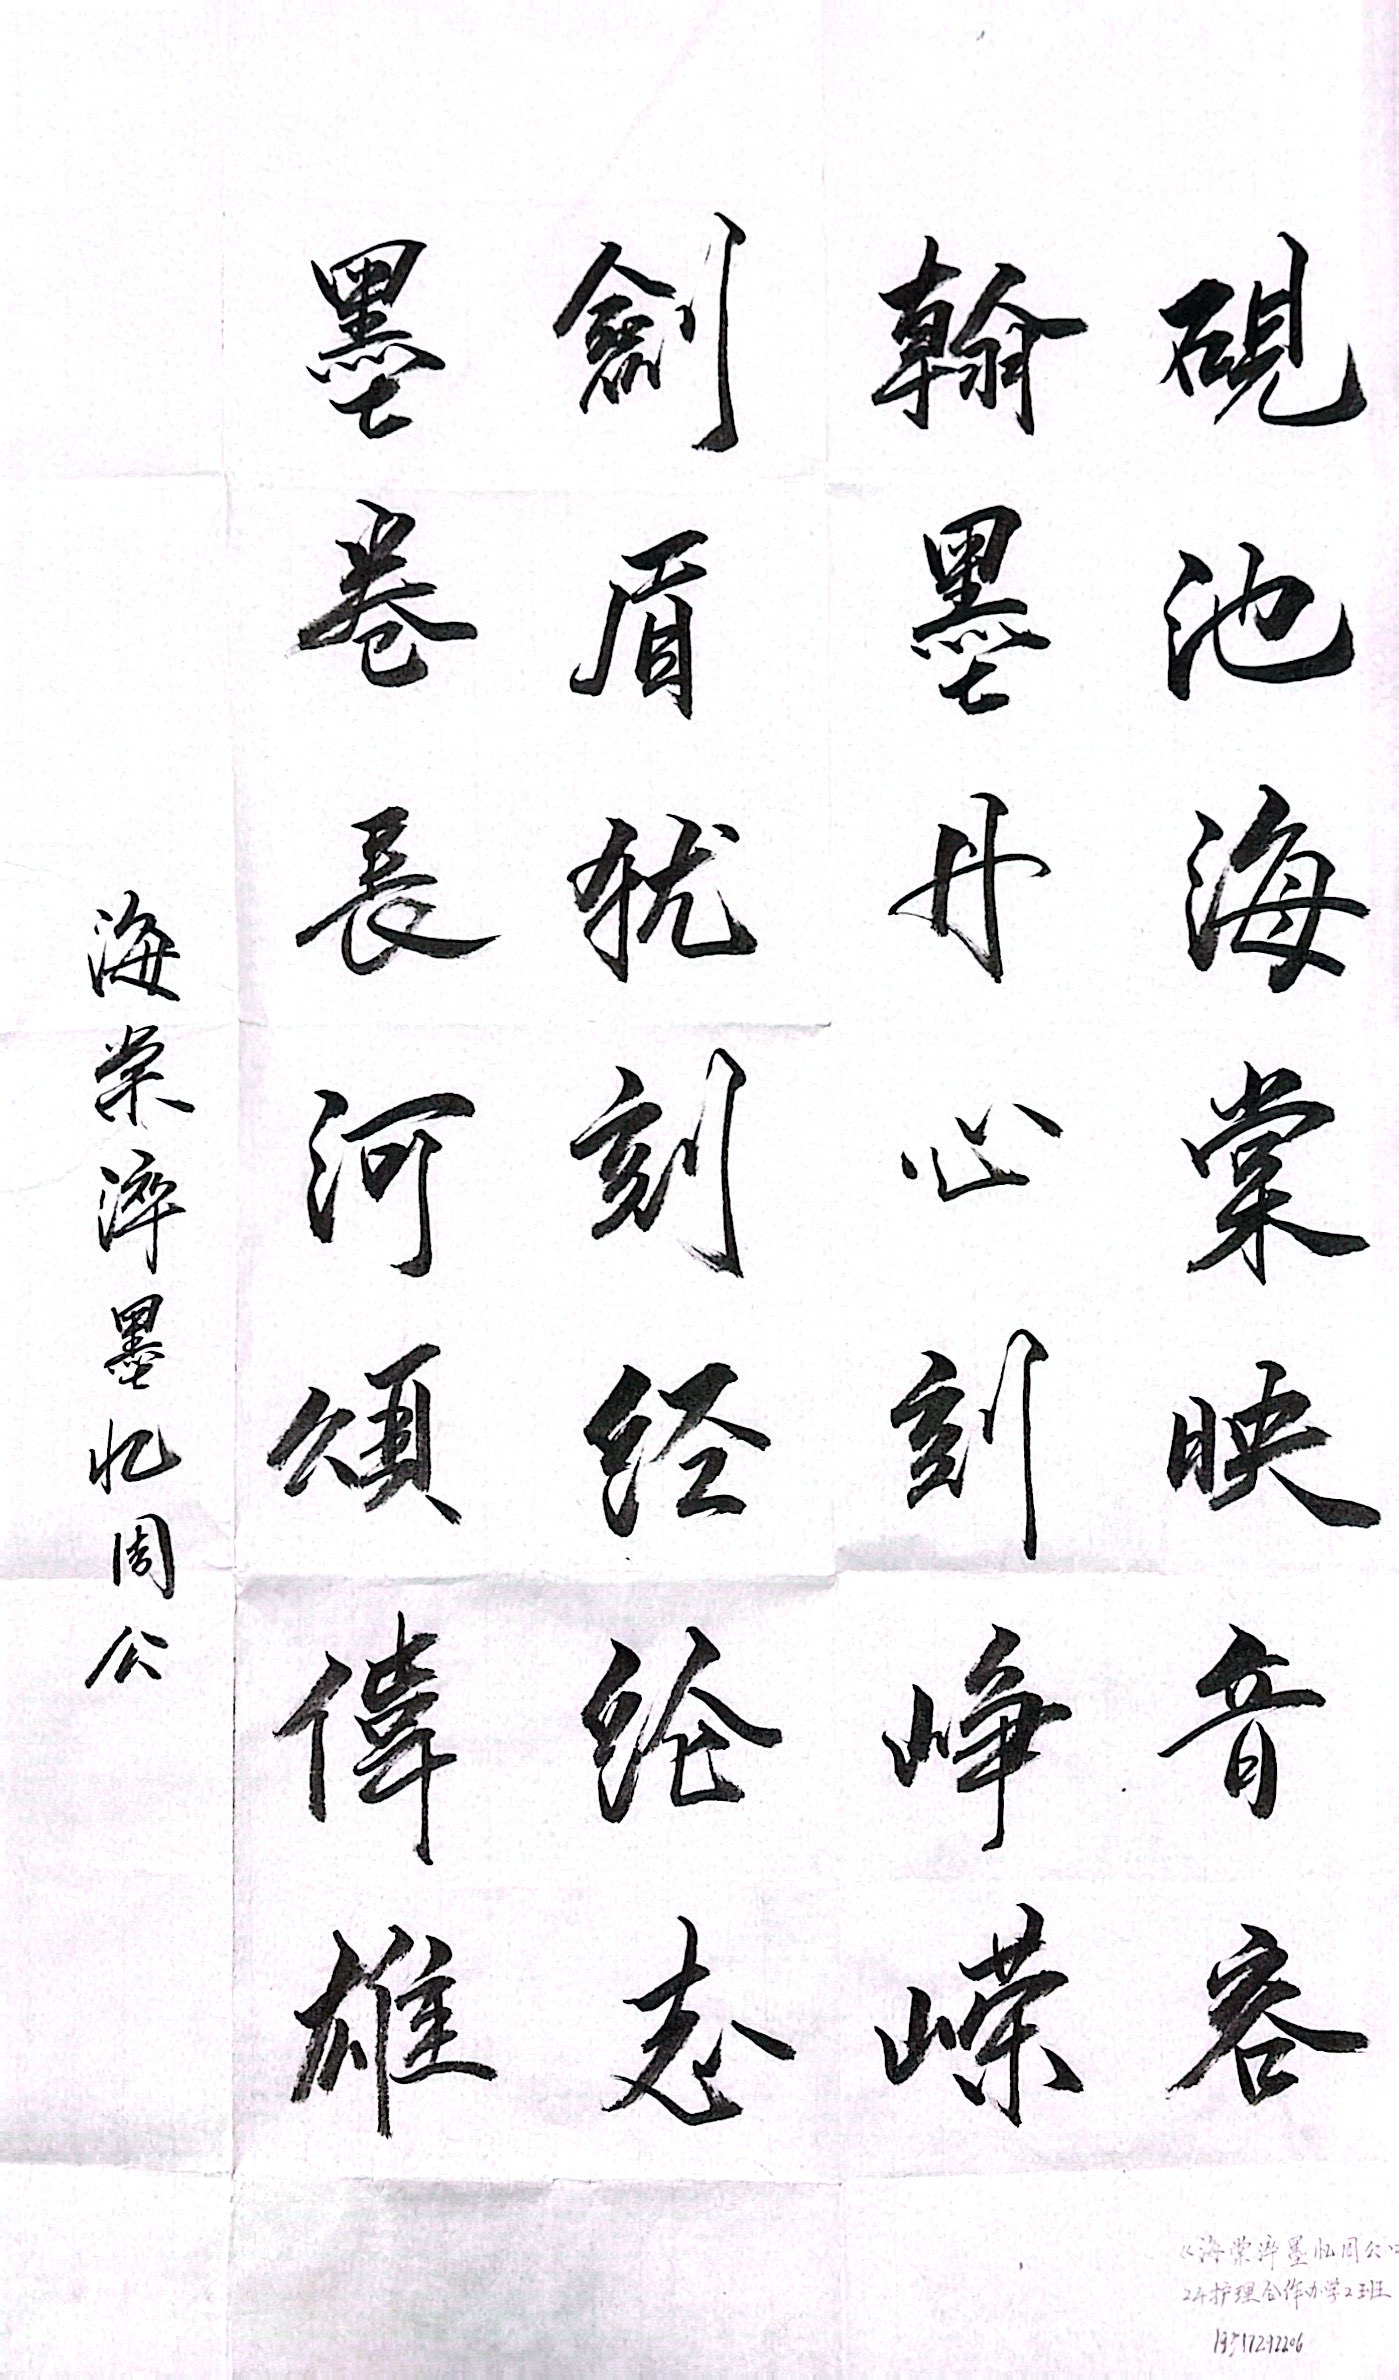 砚池海棠映音容
翰墨丹心刻峥嵘
劍眉犹刻经纶志
墨卷長河頌偉雄
海棠淬墨忆周公
《海棠淬墨忆周公》
24护理合作办学2班